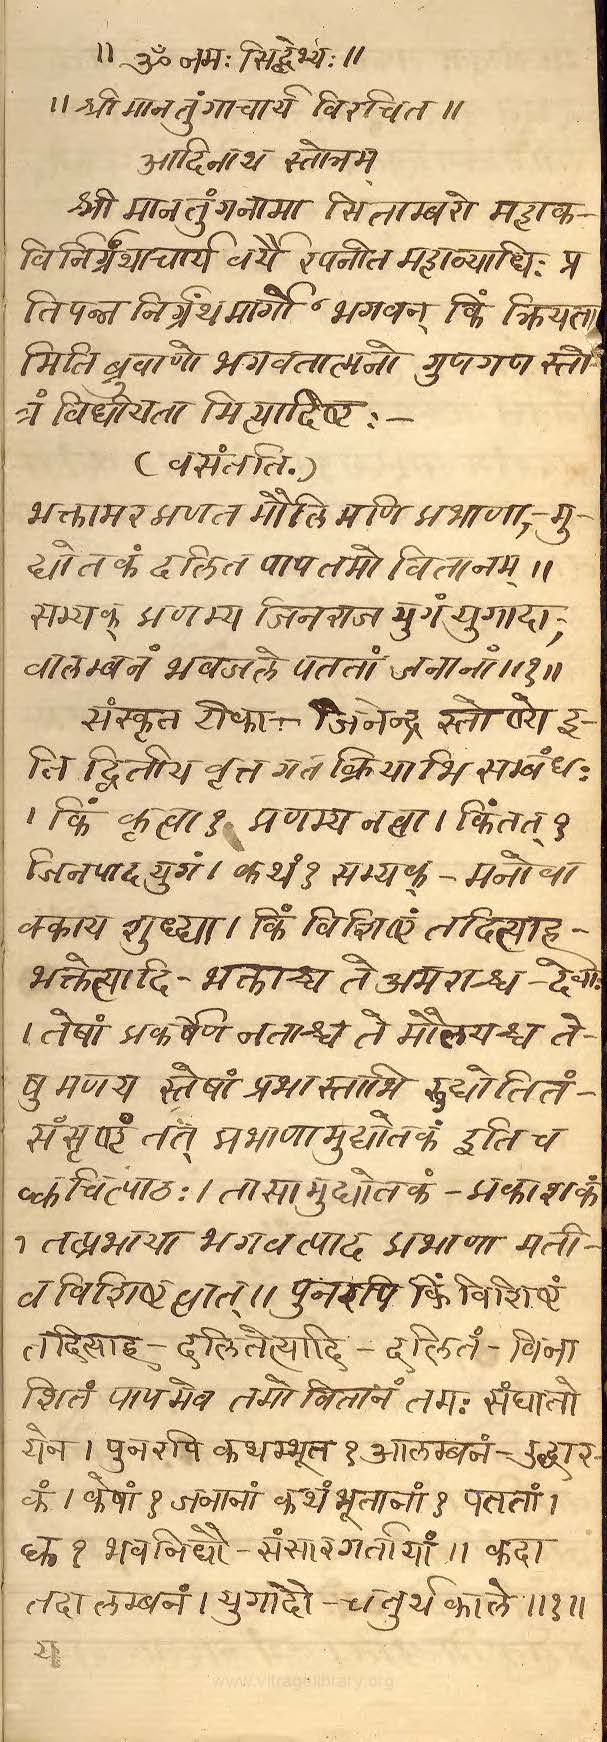 ॥ ॐ नमः सिद्धेभ्यः ॥
॥ श्री मानतुंगाचार्य विरचित ॥
आदिनाथ स्तोत्रम्
श्री मानतुंगनामा सिताम्बरो महाक-
विर्निर्ग्रंथाचार्य वर्यै रपनीत महाव्याधिः प्र
तिपन्न निर्ग्रंथमार्गो भगवन् किं क्रियता
मिति ब्रुवाणो भगवतात्मनो गुणगण स्तो
त्रं विधीयता मित्यादिष्टः -
(वसंतति.)
भक्तामर प्रणत मौलि मणि प्रभाणा,-मु-
द्योतकं दलित पाप तमो वितानम् ॥
सम्यक् प्रणम्य जिनराज युगं युगादा;
वालम्बनं भवजले पततां जनानां ॥१॥
संस्कृत टीका - जिनेन्द्र स्तोष्ये इ-
ति द्वितीय वृत्त गत क्रियाभि सम्बंधः
। किं कृत्वा ? प्रणम्य नत्वा । किंतत् ?
जिनपाद युगं । कथं ? सम्यक् - मनोवा
क्काय शुध्या । किं विशिष्टं तदित्याह -
भक्तेत्यादि - भक्ताश्च ते अमराश्च - देवाः
। तेषां प्रकर्षेण नताश्च ते मौलयश्च ते-
षु मणय स्तेषां प्रभा स्ताभि रुद्योतितं -
संसृष्टं तत् प्रभाणामुद्योतकं इति च
क्वचित्पाठः । तासामुद्योतकं - प्रकाशकं
। तत्प्रभाया भगवत्पाद प्रभाणा मती-
व विशिष्टत्वात् ॥ पुनरपि किं विशिष्टं
तदित्याह - दलितेत्यादि - दलितं - विना
शितं पापमेव तमो वितानं तमः संघातो
येन । पुनरपि कथम्भूत ? आलम्बनं - उद्धार-
कं । केषां ? जनानां कथं भूतानां ? पततां ।
क्व ? भवनिधौ - संसारगर्तायां ॥ कदा
तदा लम्बनं । युगादौ - चतुर्थ काले ॥१॥
य
www.vitragelibrary.org